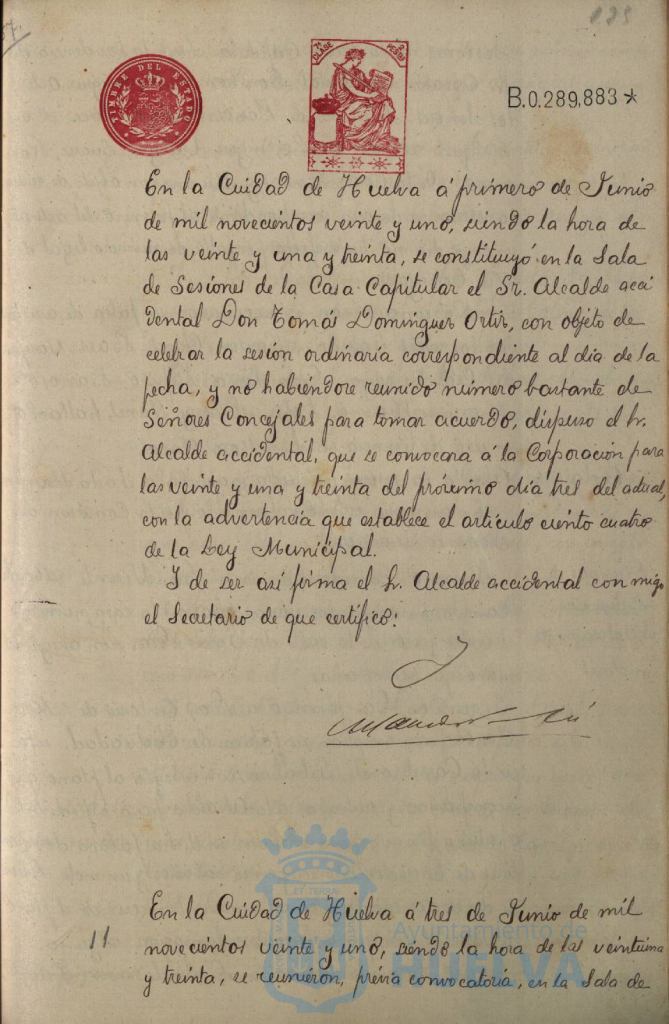 125
57.
TIMBRE DEL ESTADO
11ª CLASE 2 PESETAS
B.0.289,883*
En la Cuidad de Huelva á primero de Junio
de mil novecientos veinte y uno, siendo la hora de
las veinte y una y treinta, se constituyó en la Sala
de Sesiones de la Casa Capitular el Sr. Alcalde acci
dental Don Tomás Dominguez Ortiz, con objeto de
celebrar la sesión ordinaria correspondiente al dia de la
fecha, y no habiéndose reunido número bastante de
Señores Concejales para tomar acuerdo, dispuso el Sr.
Alcalde accidental, que se convocara á la Corporación para
las veinte y una y treinta del próximo dia tres del actual,
con la advertencia que establece el artículo ciento cuatro
de la Ley Municipal.
Y de ser así firma el Sr. Alcalde accidental con migo
el Secretario de que certifico.
En la Cuidad de Huelva á tres de Junio de mil
11 novecientos veinte y uno, siendo la hora de las veintiuna
y treinta, se reunieron, prévia convocatoria, en la Sala de
Ayuntamiento de
HUELVA